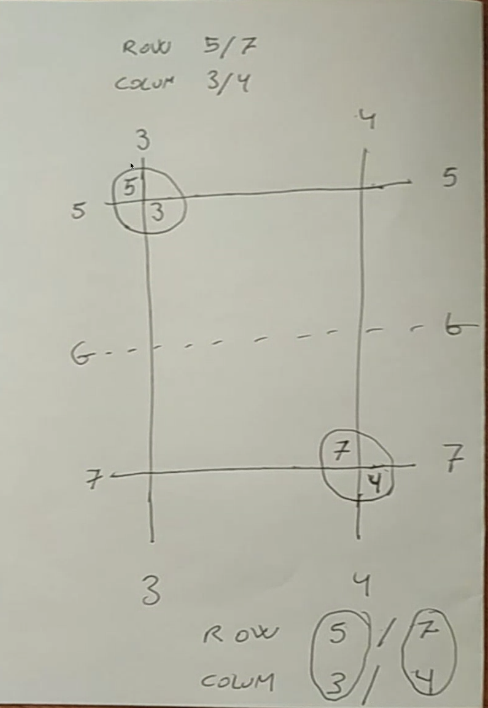 ROW 5/7
COLUM 3/4
3 4
5 5
5 3
6 6
7
7 7
4
3 4
ROW 5/7
COLUM 3/4